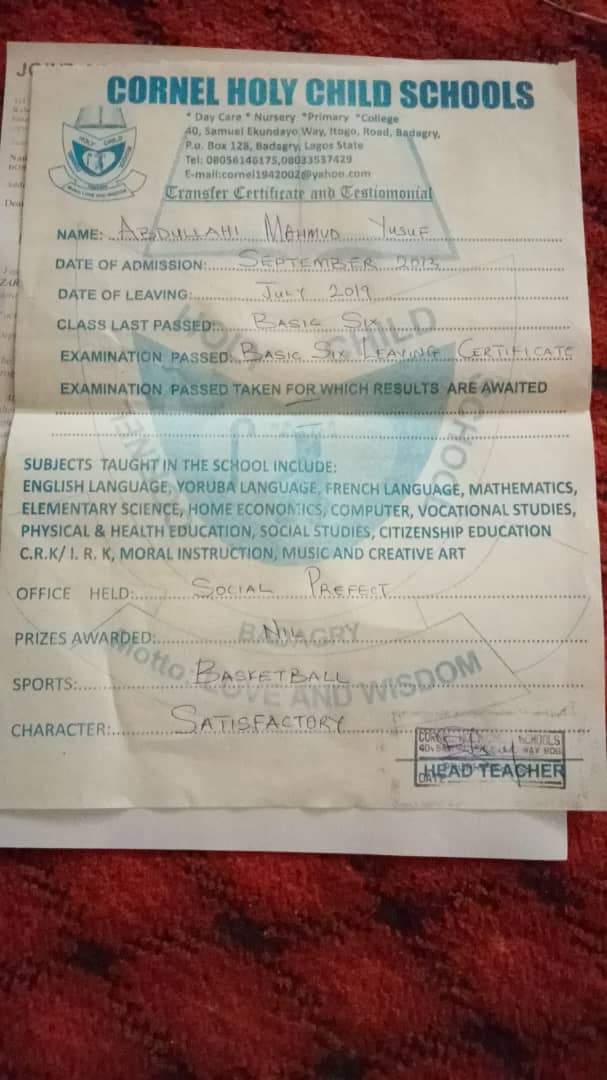 CORNEL HOLY CHILD SCHOOLS
* Day Care * Nursery *Primary *College
40, Samuel Ekundayo Way, Itogo, Road, Badagry,
P.o. Box 128, Badagry, Lagos State
Tel: 08056146175,08033537429
E-mail:cornel1942002@yahoo.com
Transfer Certificate and Testiomonial
NAME: ABDULLAHI MAHMUD YUSUF
DATE OF ADMISSION: SEPTEMBER 2013
DATE OF LEAVING: JULY 2019
CLASS LAST PASSED: BASIC SIX
EXAMINATION PASSED: BASIC SIX LEAVING CERTIFICATE
EXAMINATION PASSED TAKEN FOR WHICH RESULTS ARE AWAITED
SUBJECTS TAUGHT IN THE SCHOOL INCLUDE:
ENGLISH LANGUAGE, YORUBA LANGUAGE, FRENCH LANGUAGE, MATHEMATICS,
ELEMENTARY SCIENCE, HOME ECONOMICS, COMPUTER, VOCATIONAL STUDIES,
PHYSICAL & HEALTH EDUCATION, SOCIAL STUDIES, CITIZENSHIP EDUCATION
C.R.K/ I. R. K, MORAL INSTRUCTION, MUSIC AND CREATIVE ART
OFFICE HELD: SOCIAL PREFECT
PRIZES AWARDED: NIL
BADAGRY
SPORTS: BASKETBALL
Motto: LOVE AND WISDOM
CHARACTER: SATISFACTORY
SCHOOLS
HEAD TEACHER